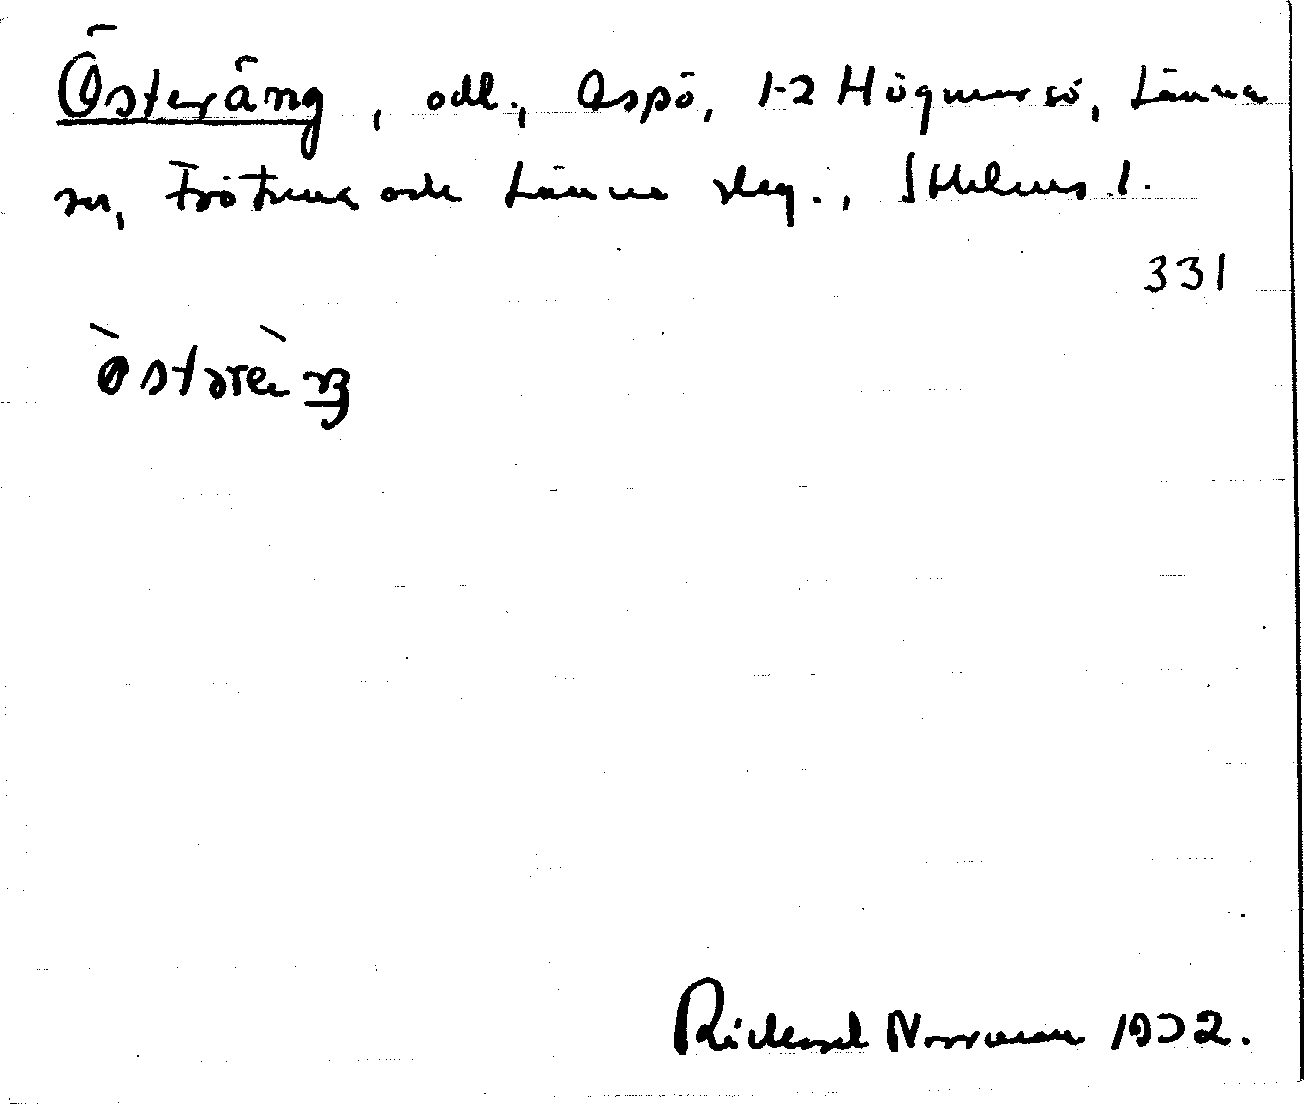 Österäng, odl., Aspö, 1-2 Högmarsö, Länna
sn, Frötuna och Länna slg., Sthlms l.
331
Rickard Norrman 1932.